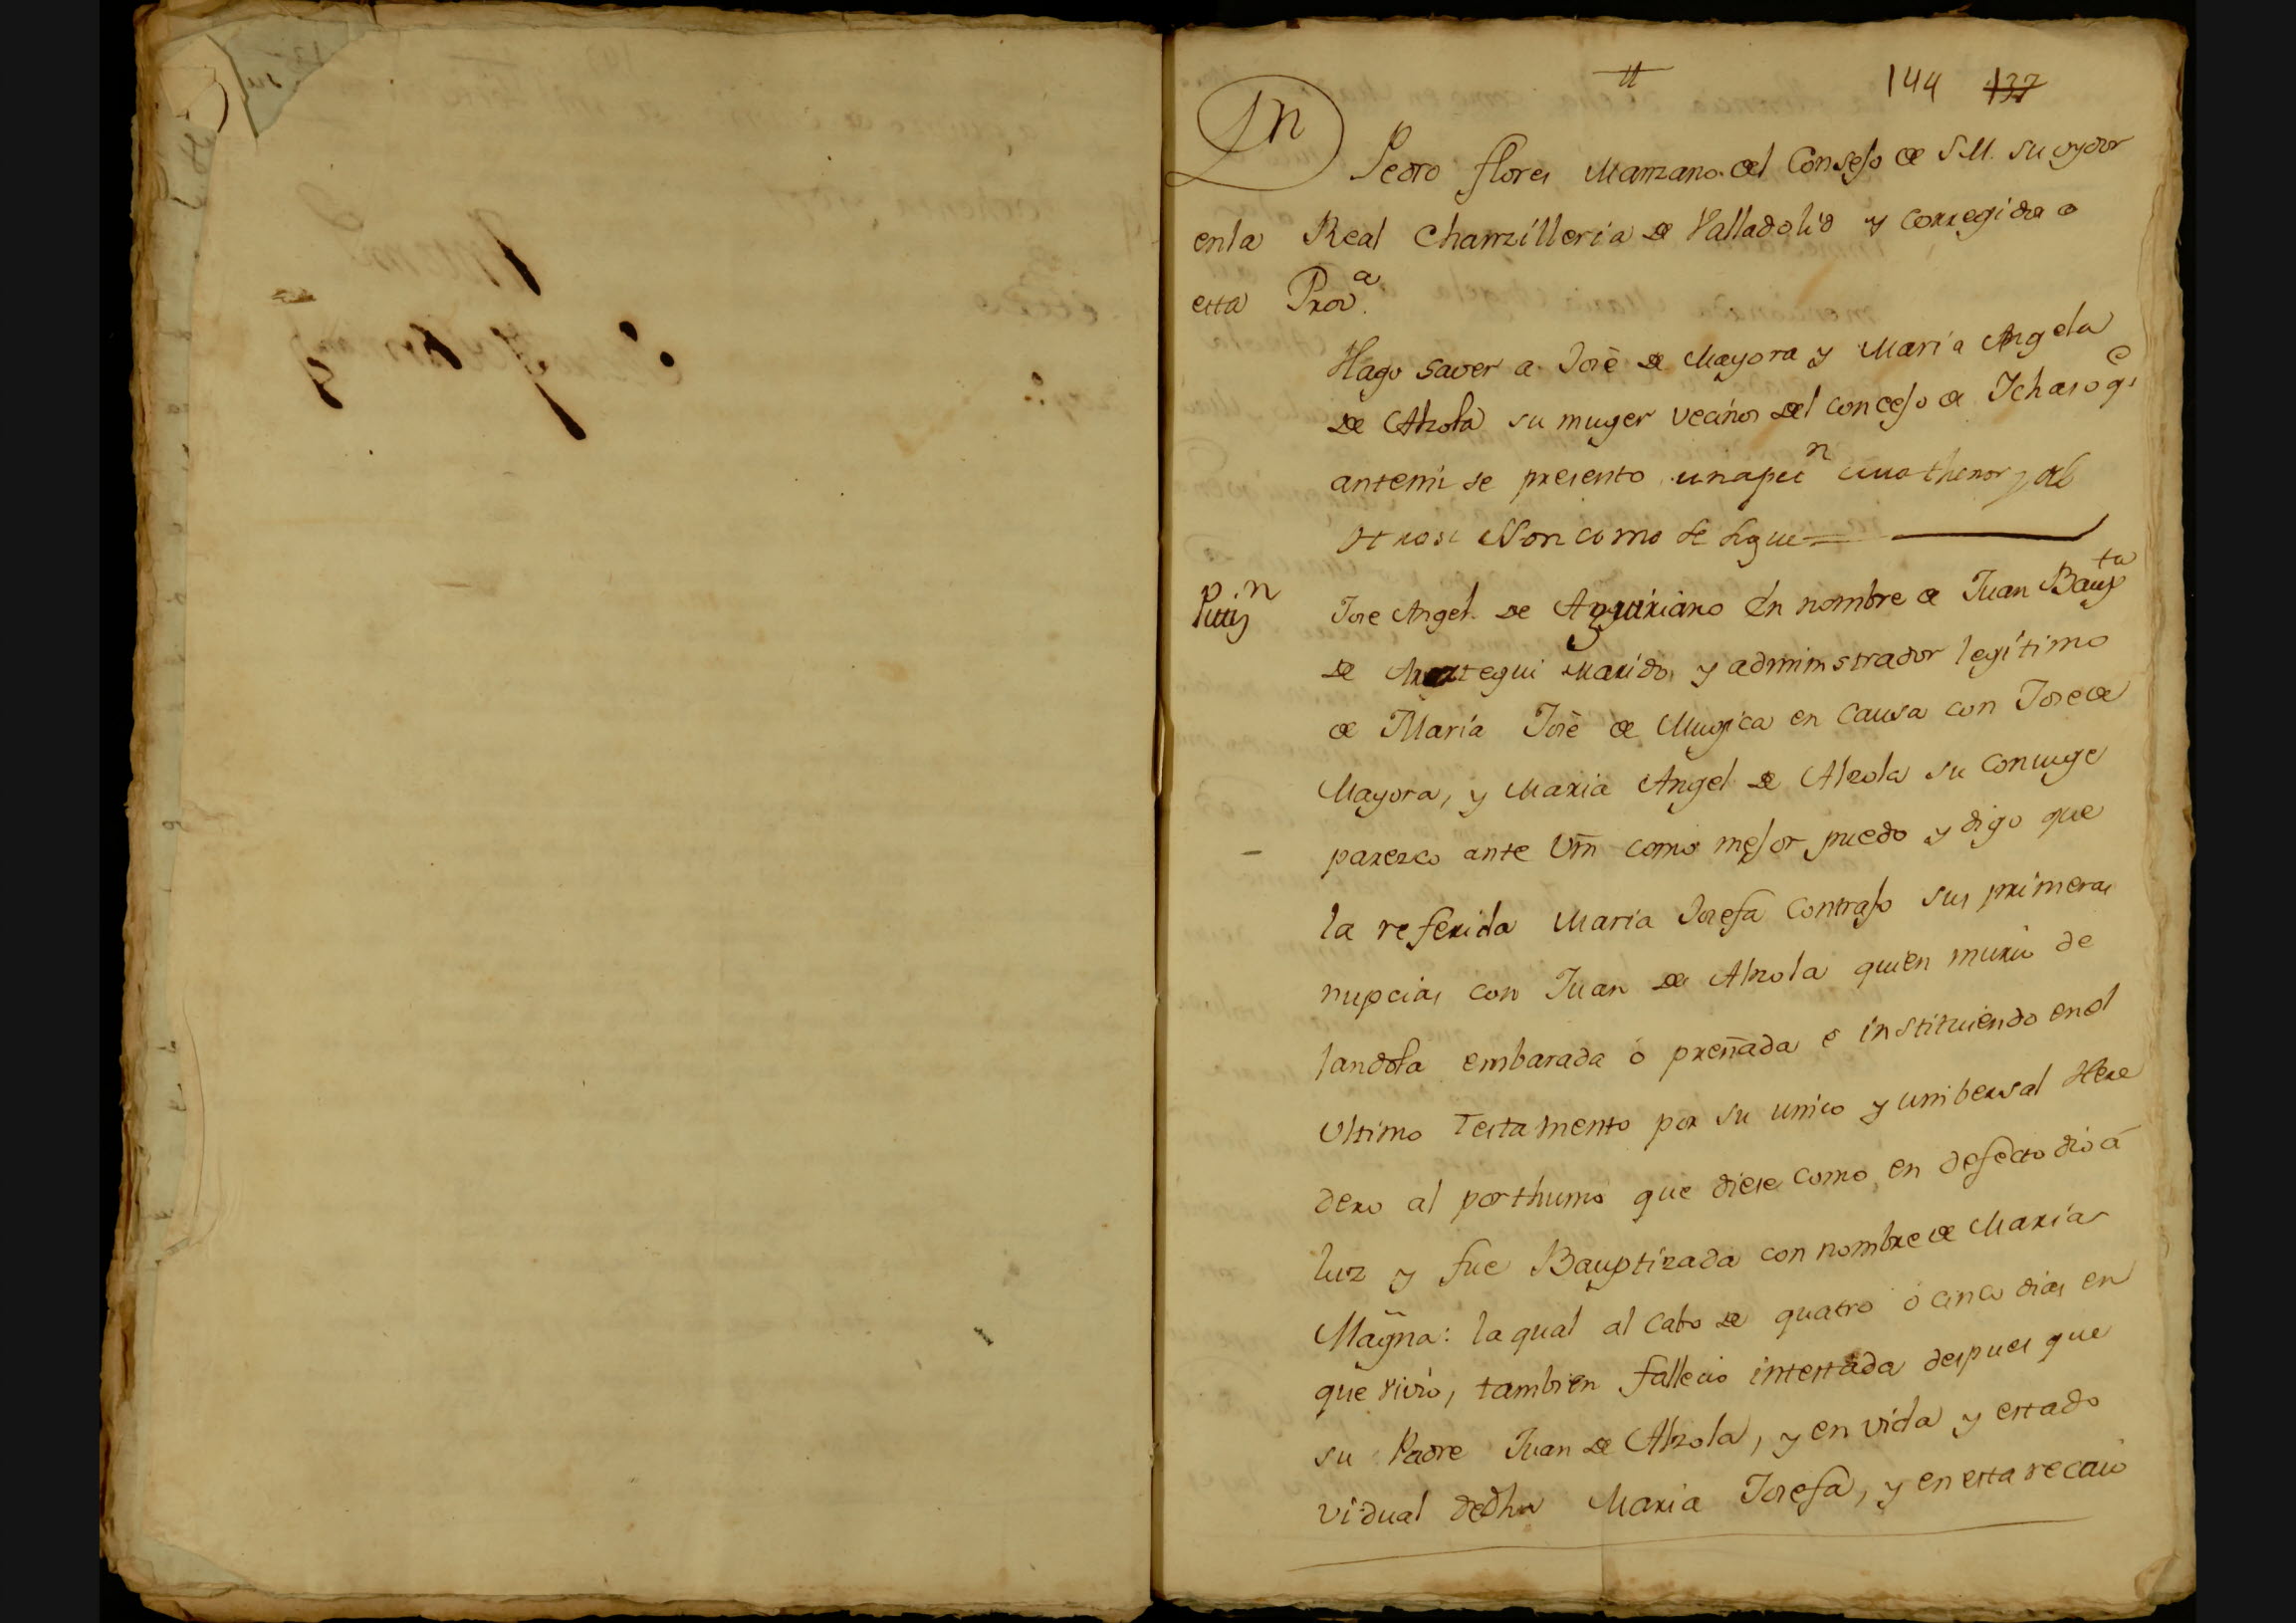 144 137
Dn
Pedro flores Manzano del Consejo de S.M. su oydor
en la Real Chanzilleria de Valladolid y corregidor de
esta Prova.
Hago saver a José de Mayora y Maria Angela
de Alzola su muger vecinos del concejo de Ichaso qe
antemi se presento una petin cuio thenor, del
otrosi son como se sigue =
Pettin
Jose Angel de Aguiriano en nombre de Juan Baupta
de Aroztegui Marido, y administrador legitimo
de Maria José de Mugica en Causa con Jose de
Mayora, y Maria Angel de Alzola su conjuge
parezco ante Vm como mejor puedo y digo que
la referida Maria Josefa Contrajo sus primeras
nupcias con Juan de Alzola quien murio de
jandola embarada o preñada e instituiendo en el
Ultimo Testamento por su unico y unibersal Here
dero al posthumo que diese como en defecto dio á
luz y fue Bauptizada con nombre de Maria
Magna: la qual al cabo de quatro o cinco dias en
que vivio, tambien fallecio intestada despues que
su Padre Juan de Alzola, y en vida y estado
vidual de dha Maria Josefa, y en esta recaio